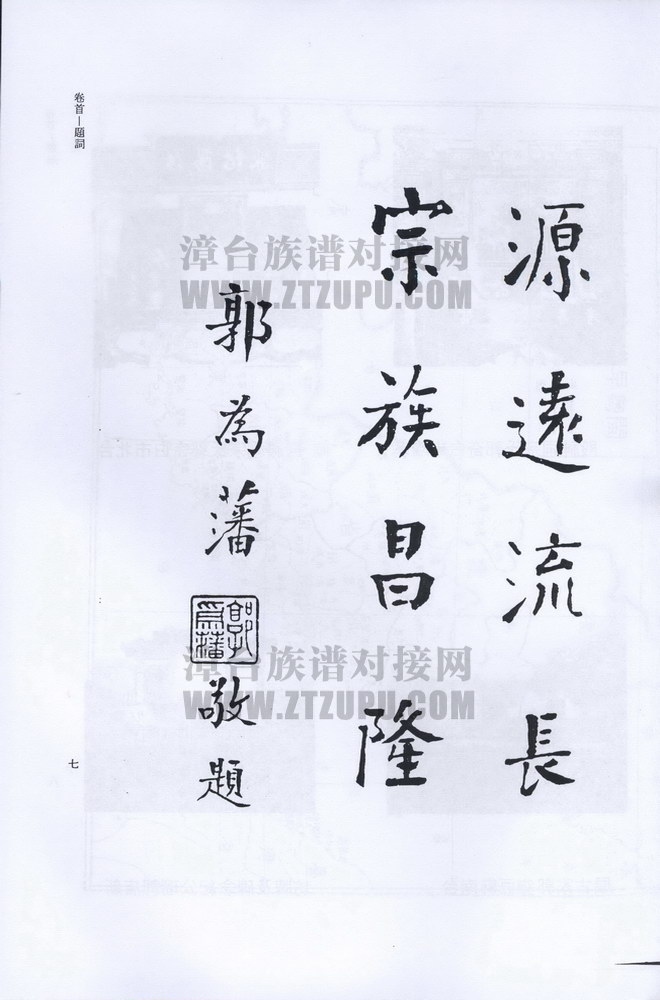 源遠流長
宗族昌隆
郭為藩
郭為藩
敬題
卷首—題詞
七
漳台族谱对接网
WWW.ZTZUPU.COM
漳台族谱对接网
WWW.ZTZUPU.COM